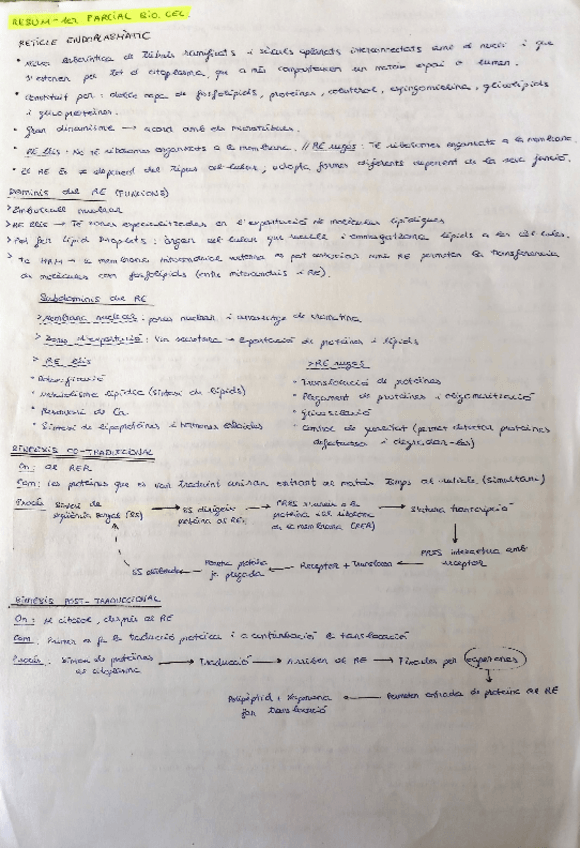 RESUM - 1er PARCIAL BIO. CEL.
RETICLE ENDOPLASMÀTIC
• Xarxa laberíntica de túbuls ramificats i sàculs aplanats interconnectats amb el nucli i que
s'estenen per tot el citoplasma, que a més comparteixen un mateix espai o lumen.
• Constituït per: doble capa de fosfolípids, proteïnes, colesterol, esfingomielina, glicolípids
i glicoproteïnes.
• Gran dinamisme → acord amb els microtúbuls.
• RE llis: No té ribosomes organitzats a la membrana. // RE rugós: Té ribosomes organitzats a la membrana.
• El RE és depenent del tipus cel·lular, adopta formes diferents depenent de la seva funció.
Dominis del RE (FUNCIONS)
> Embolcall nuclear
> RE llis → Té zones especialitzades en l'exportació de molècules lipídiques
> Pot fer Lipid Droplets: òrgan cel·lular que recull i emmagatzema lípids a les cèl·lules.
> Té MAM → membrana mitocondrial externa es pot associar amb RE permeten la transferència
de molècules com fosfolípids (entre mitocondris i RE).
Subdominis del RE
> Membrana nuclear: porus nuclear i ancoratge de cromatina
> Zones d'exportació: Via secretora → Exportació de proteïnes i lípids
> RE llis
• Detoxificació
• Metabolisme lipídic (síntesi de lípids)
• Reservori de Ca
• Síntesi de lipoproteïnes i hormones esteroides
> RE rugós
• Translocació de proteïnes
• Plegament de proteïnes i oligomerització
• Glicosilació
• Control de qualitat (permet detectar proteïnes
defectuoses i degradar-les)
SÍNTESIS CO-TRADUCCIONAL
On: al RER
Com: les proteïnes que es van traduint aniran entrant al mateix temps al reticle. (simultani)
Procés: Síntesi de seqüència senyal (SS) → SS dirigeix proteïna al RE → PRSS s'uneix a la proteïna i al ribosoma de la membrana (RER) → S'atura transcripció
→ PRSS interactua amb receptor
→ Receptor + Translocó → proteïna ja plegada → SS alliberada
SÍNTESIS POST-TRADUCCIONAL
On: al citosol, després al RE
Com: Primer es fa la traducció proteica i a continuació la translocació
Procés: Síntesi de proteïnes al citoplasma → Traducció → Arriben al RE → Fixades per xaperones
→ Permeten entrada de proteïna al RE → Polipèptid + Xaperona fan translocació